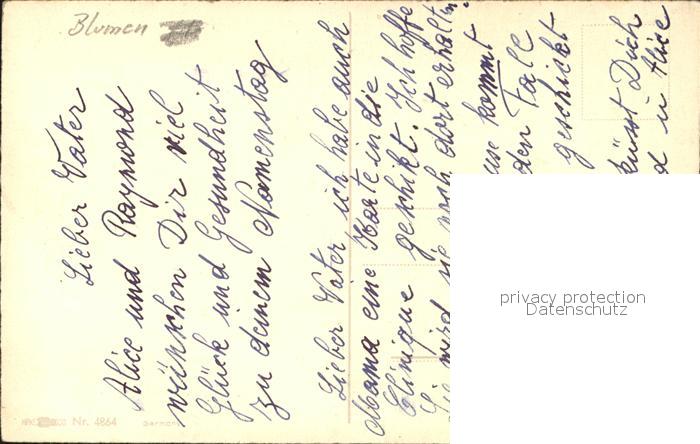 Blumen
Lieber Vater
Alice und Raymond
wünschen Dir viel
Glück und Gesundheit
zu deinem Namenstag
Lieber Vater ich habe auch
Mama eine Karte in die
Clinique geschikt. Ich hoffe
Sie wird sie noch dort erhalten
kommt
den Fall
geschickt
küsst Dich
u Alice
privacy protection
Datenschutz
Nr. 4864
Germany